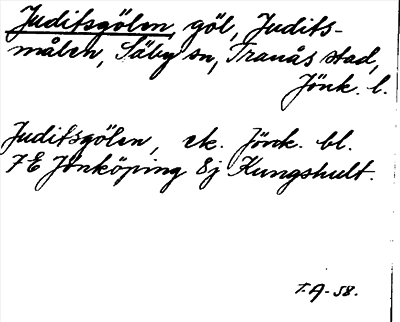 Juditsgölen, göl, Judits-
målen, Säby sn, Tranås stad,
Jönk. l.
Juditsgölen, ek. Jönk. bl.
7E Jönköping 8j Kungshult.
T.A-58.